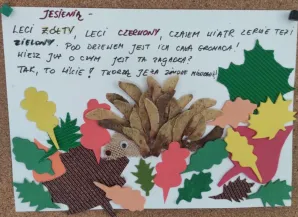 JESIENIĄ -
LECI ŻÓŁTY, LECI CZERWONY, CZASEM WIATR ZERWIE TEŻ
ZIELONY. POD DRZEWEM JEST ICH CAŁA GROMADA!
WIESZ JUŻ O CZYM JEST TA ZAGADKA?
TAK, TO LIŚCIE! TWORZĄ JEŻA